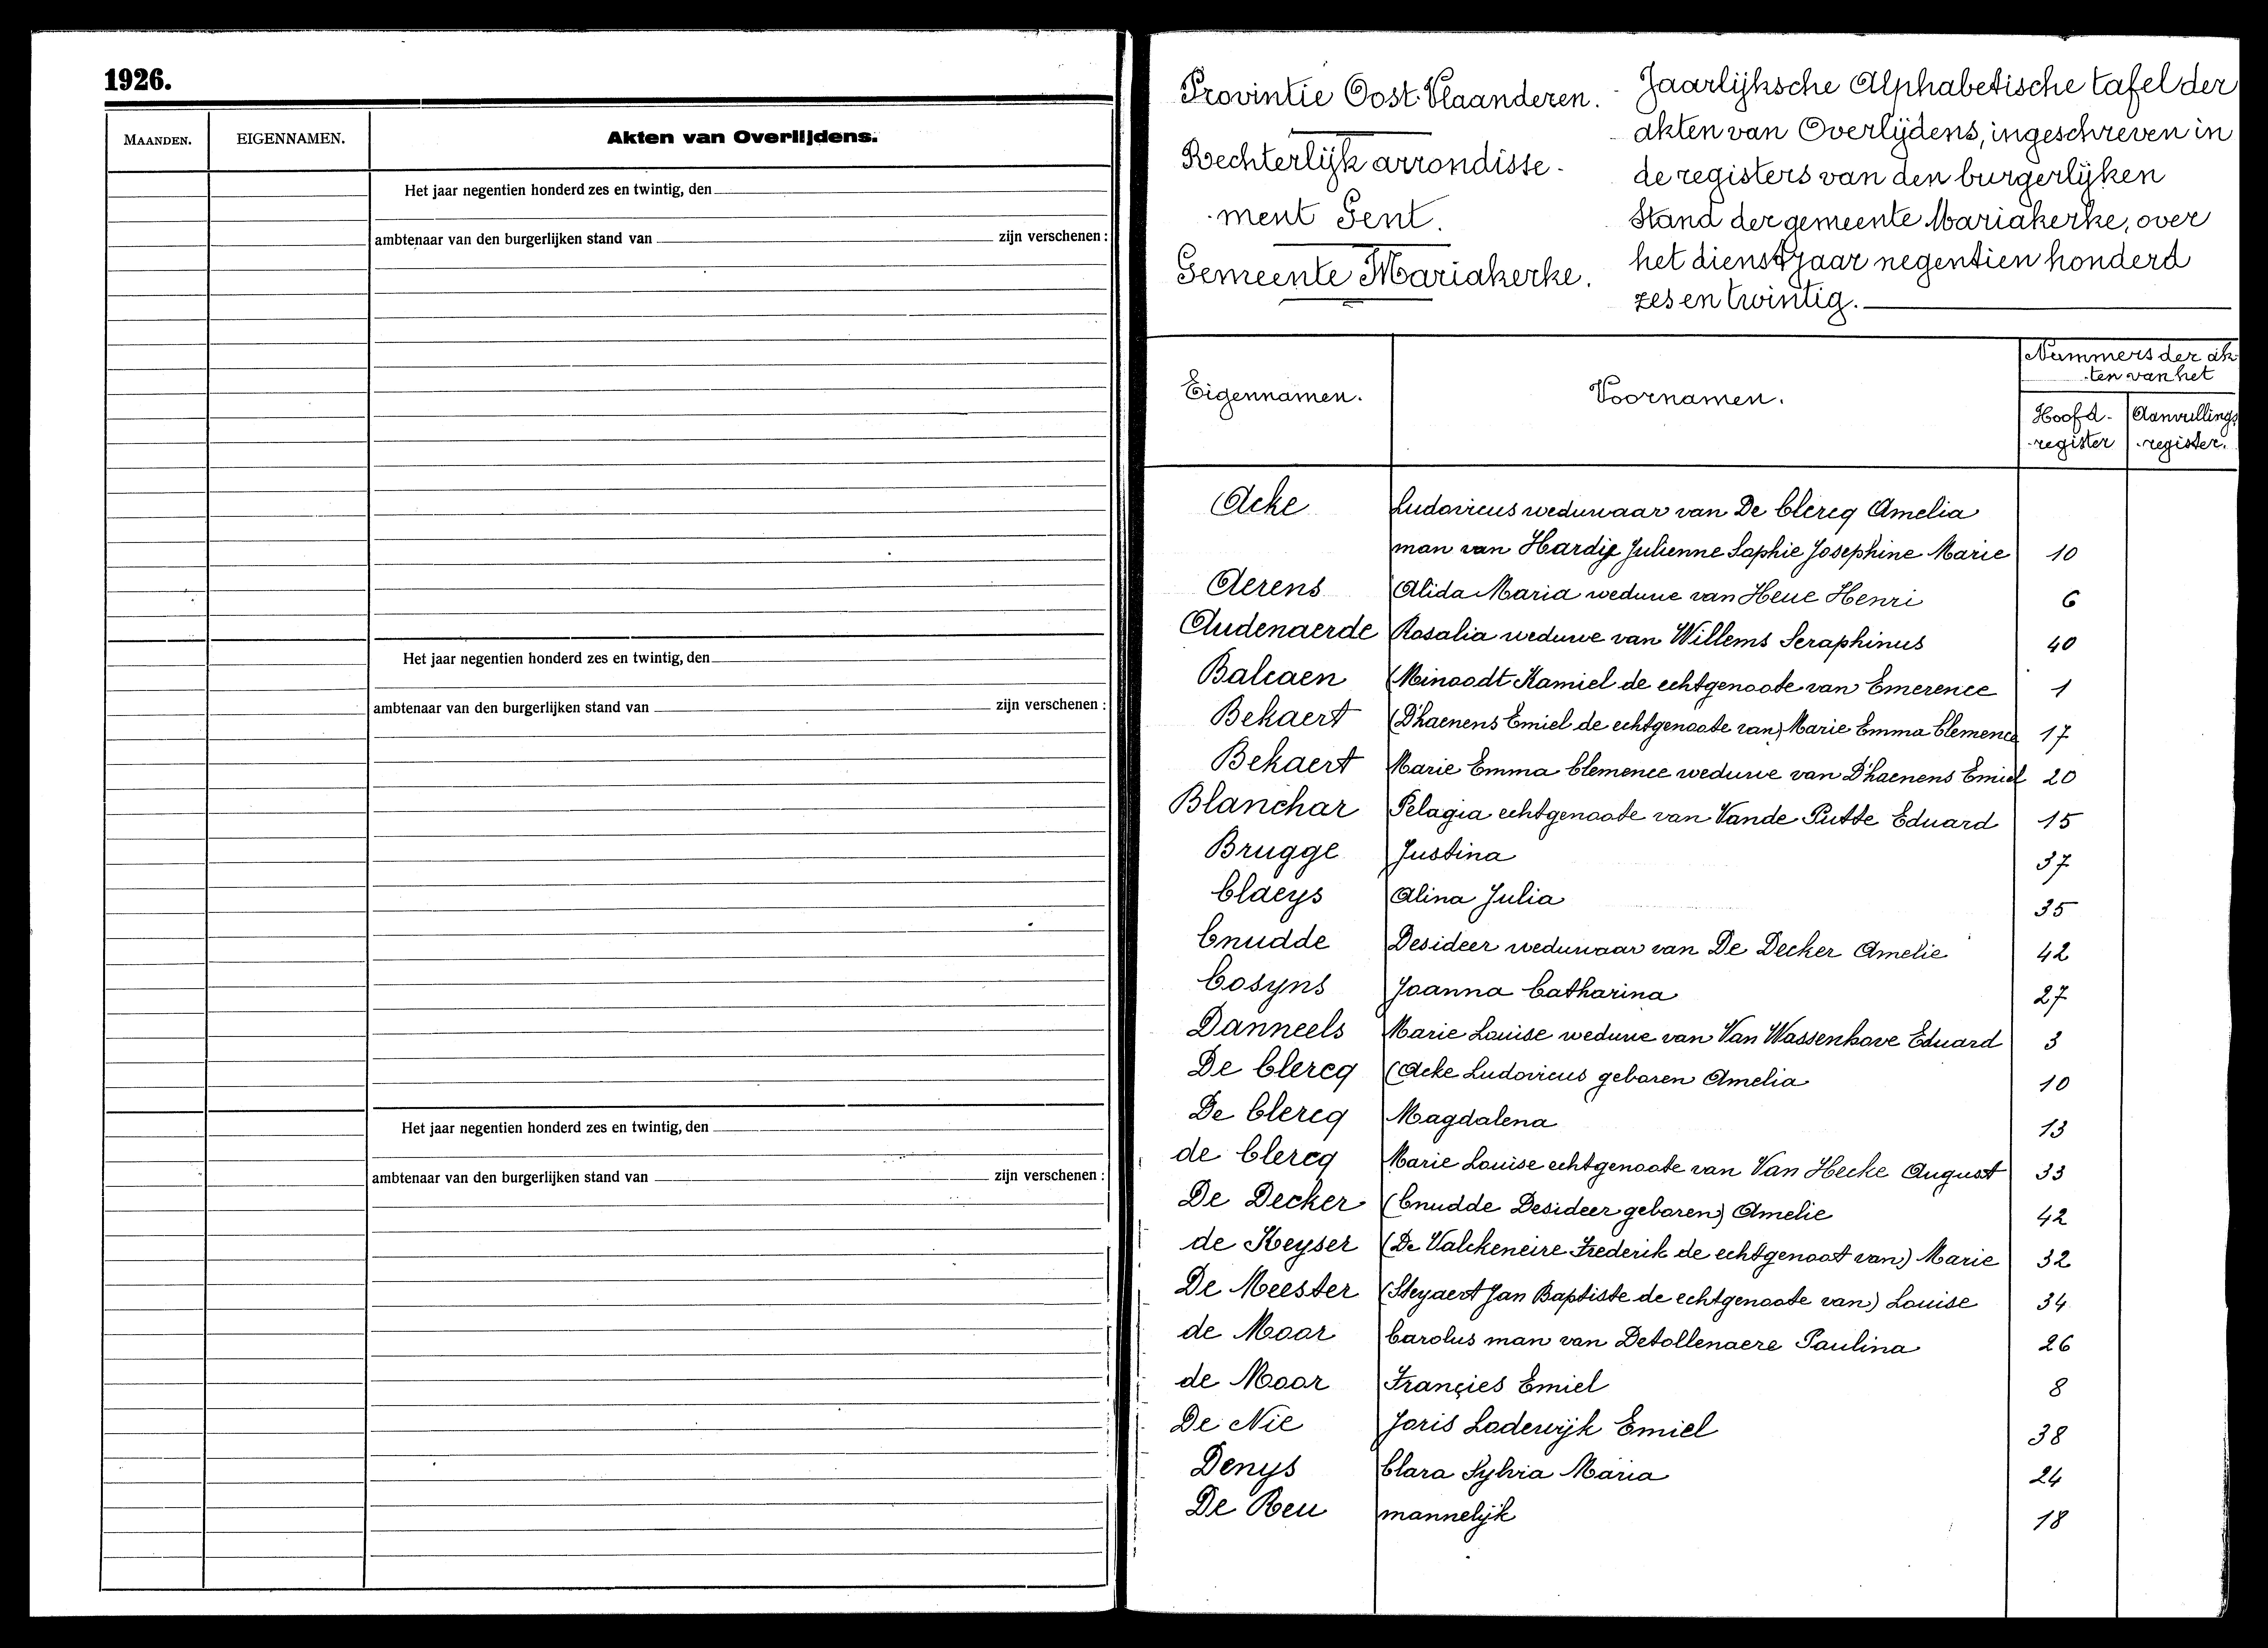 1926.
MAANDEN. EIGENNAMEN. Akten van Overlijdens.
Het jaar negentien honderd zes en twintig, den
ambtenaar van den burgerlijken stand van zijn verschenen :
Het jaar negentien honderd zes en twintig, den
ambtenaar van den burgerlijken stand van zijn verschenen :
Het jaar negentien honderd zes en twintig, den
ambtenaar van den burgerlijken stand van zijn verschenen :
Provintie Oost-Vlaanderen.
Rechterlijk arrondisse-
-ment Gent.
Gemeente Mariakerke.
Jaarlijksche Alphabetische tafel der
akten van Overlijdens, ingeschreven in
de registers van den burgerlijken
Stand der gemeente Mariakerke, over
het dienstjaar negentien honderd
zes en twintig.
Eigennamen. Voornamen. Nummers der ak-
-ten van het
Hoofd- Aanvullings
-register -register.
Acke Ludovicus weduwaar van De Clercq Amelia
man van Hardij Julienne Sophie Josephine Marie 10
Aerens Alida Maria weduwe van Heue Henri 6
Audenaerde Rosalia weduwe van Willems Seraphinus 40
Balcaen (Minoodt Kamiel de echtgenoote van Emerence 1
Bekaert (D'haenens Emiel de echtgenoote van) Marie Emma Clemence 17
Bekaert Marie Emma Clemence weduwe van D'haenens Emiel 20
Blanchar Pelagia echtgenoote van Vande Putte Eduard 15
Brugge Justina 37
Claeys Alina Julia 35
Cnudde Desideer weduwaar van De Decker Amelie 42
Cosyns Joanna Catharina 27
Danneels Marie Louise weduwe van Van Wassenhove Eduard 3
De Clercq (Acke Ludovicus geboren Amelia 10
De Clercq Magdalena 13
de Clercq Marie Louise echtgenoote van Van Hecke August 33
De Decker (Cnudde Desideer geboren) Amelie 42
de Keyser (De Valckeneire Frederik de echtgenoot van) Marie 32
De Meester (Steyaert Jan Baptiste de echtgenoote van) Louise 34
de Moor Carolus man van Detollenaere Paulina 26
de Moor Françies Emiel 8
De Nie Joris Lodewijk Emiel 38
Denys Clara Sylvia Maria 24
De Reu mannelijk 18